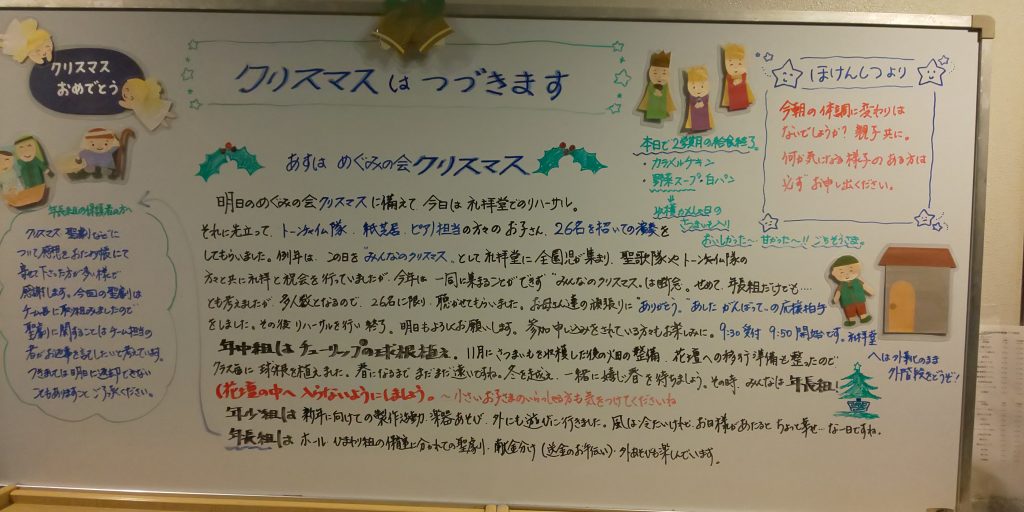 クリスマス
おめでとう
クリスマスはつづきます
あすは めぐみの会クリスマス
明日のめぐみの会クリスマスに備えて、今日は礼拝堂でのリハーサル。
それに先立って、トーンチャイム隊、紙芝居、ピアノ担当の方々のお子さん、26名を招いての演奏を
してもらいました。例年は、この日を"みんなのクリスマス"として礼拝堂に全園児が集まり、聖歌隊やトーンチャイム隊の
方々と共に礼拝と祝会を行っていましたが、今年は一同に集まることができず"みんなのクリスマス"は断念。せめて、年長組だけでも…
とも考えましたが、多人数となるので、26名に限り、聴かせてもらいました。お母さん達の頑張りに"ありがとう。""あしたがんばって"の応援拍手
をしました。その後リハーサルを行い終了。明日もよろしくお願いします。参加申し込みをされている方々もお楽しみに。9:30受付 9:50開始です。礼拝堂
へは外靴のまま
外階段をどうぞ!
年中組はチューリップの球根植え。11月にさつまいもを収穫した後の畑の整備、花壇への移行準備も整ったので
クラス毎に球根を植えました。春になるまでまだまだ遠いですね。冬を越え、一緒に嬉しい春を待ちましょう。その時、みんなは年長組!
(花壇の中へ入らないようにしましょう。~小さいお子さまのいらっしゃる方も気をつけてくださいね
年少組は新年に向けての製作活動、楽器あそび、外にも遊びに行きました。風は冷たいけれど、お日様があたると ちょっと幸せ…な一日ですね。
年長組は ホール、ひまわり組の備品上分れての聖劇、献金分け(送金のお手伝い)、外あそびも楽しんでいます。
本日で2学期の給食終了。
・カラメルチキン
・野菜スープ・白パン
おいしかった~ 甘かった~!! ごちそうさま。
ほけんしつより
今朝の体調に変わりは
ないでしょうか? 親子共に。
何か気になる様子のある方は
必ずお申し出ください。
年長組の保護者の方へ
クリスマス聖劇などに
ついて感想をおたより帳にて
寄せて下さった方が多い様で
感謝します。今回の聖劇は
チーム毎に取り組みましたので
聖劇に関することはチーム担当の
者がお返事を記したいと考えています。
つきましては明日に返却できない
こともありますこと ご了承ください。